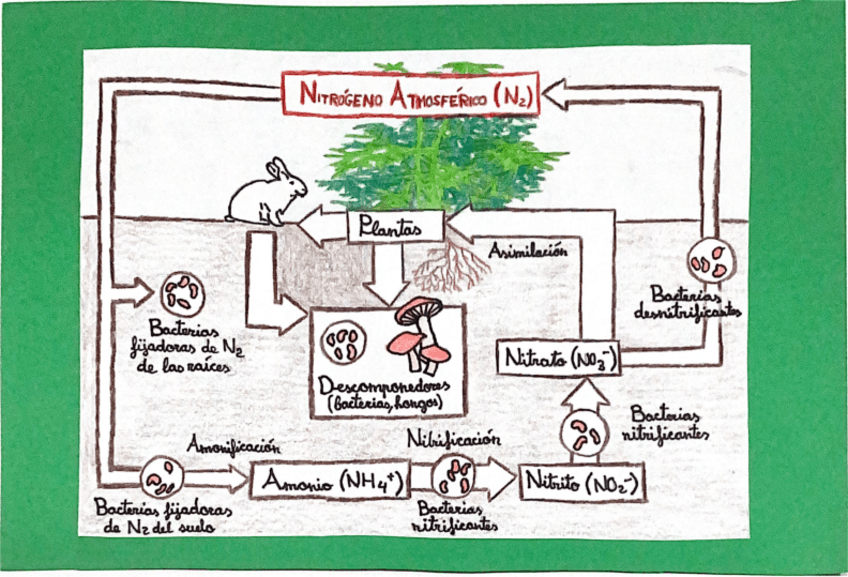 NITRÓGENO ATMOSFÉRICO (N₂)
Plantas
Asimilación
Bacterias
desnitrificantes
Bacterias
fijadoras de N₂
de las raíces
Nitrato (NO₃⁻)
Descomponedores
(bacterias, hongos)
Bacterias
nitrificantes
Amonificación
Nitrificación
Amonio (NH₄⁺)
Nitrito (NO₂⁻)
Bacterias fijadoras
de N₂ del suelo
Bacterias
nitrificantes